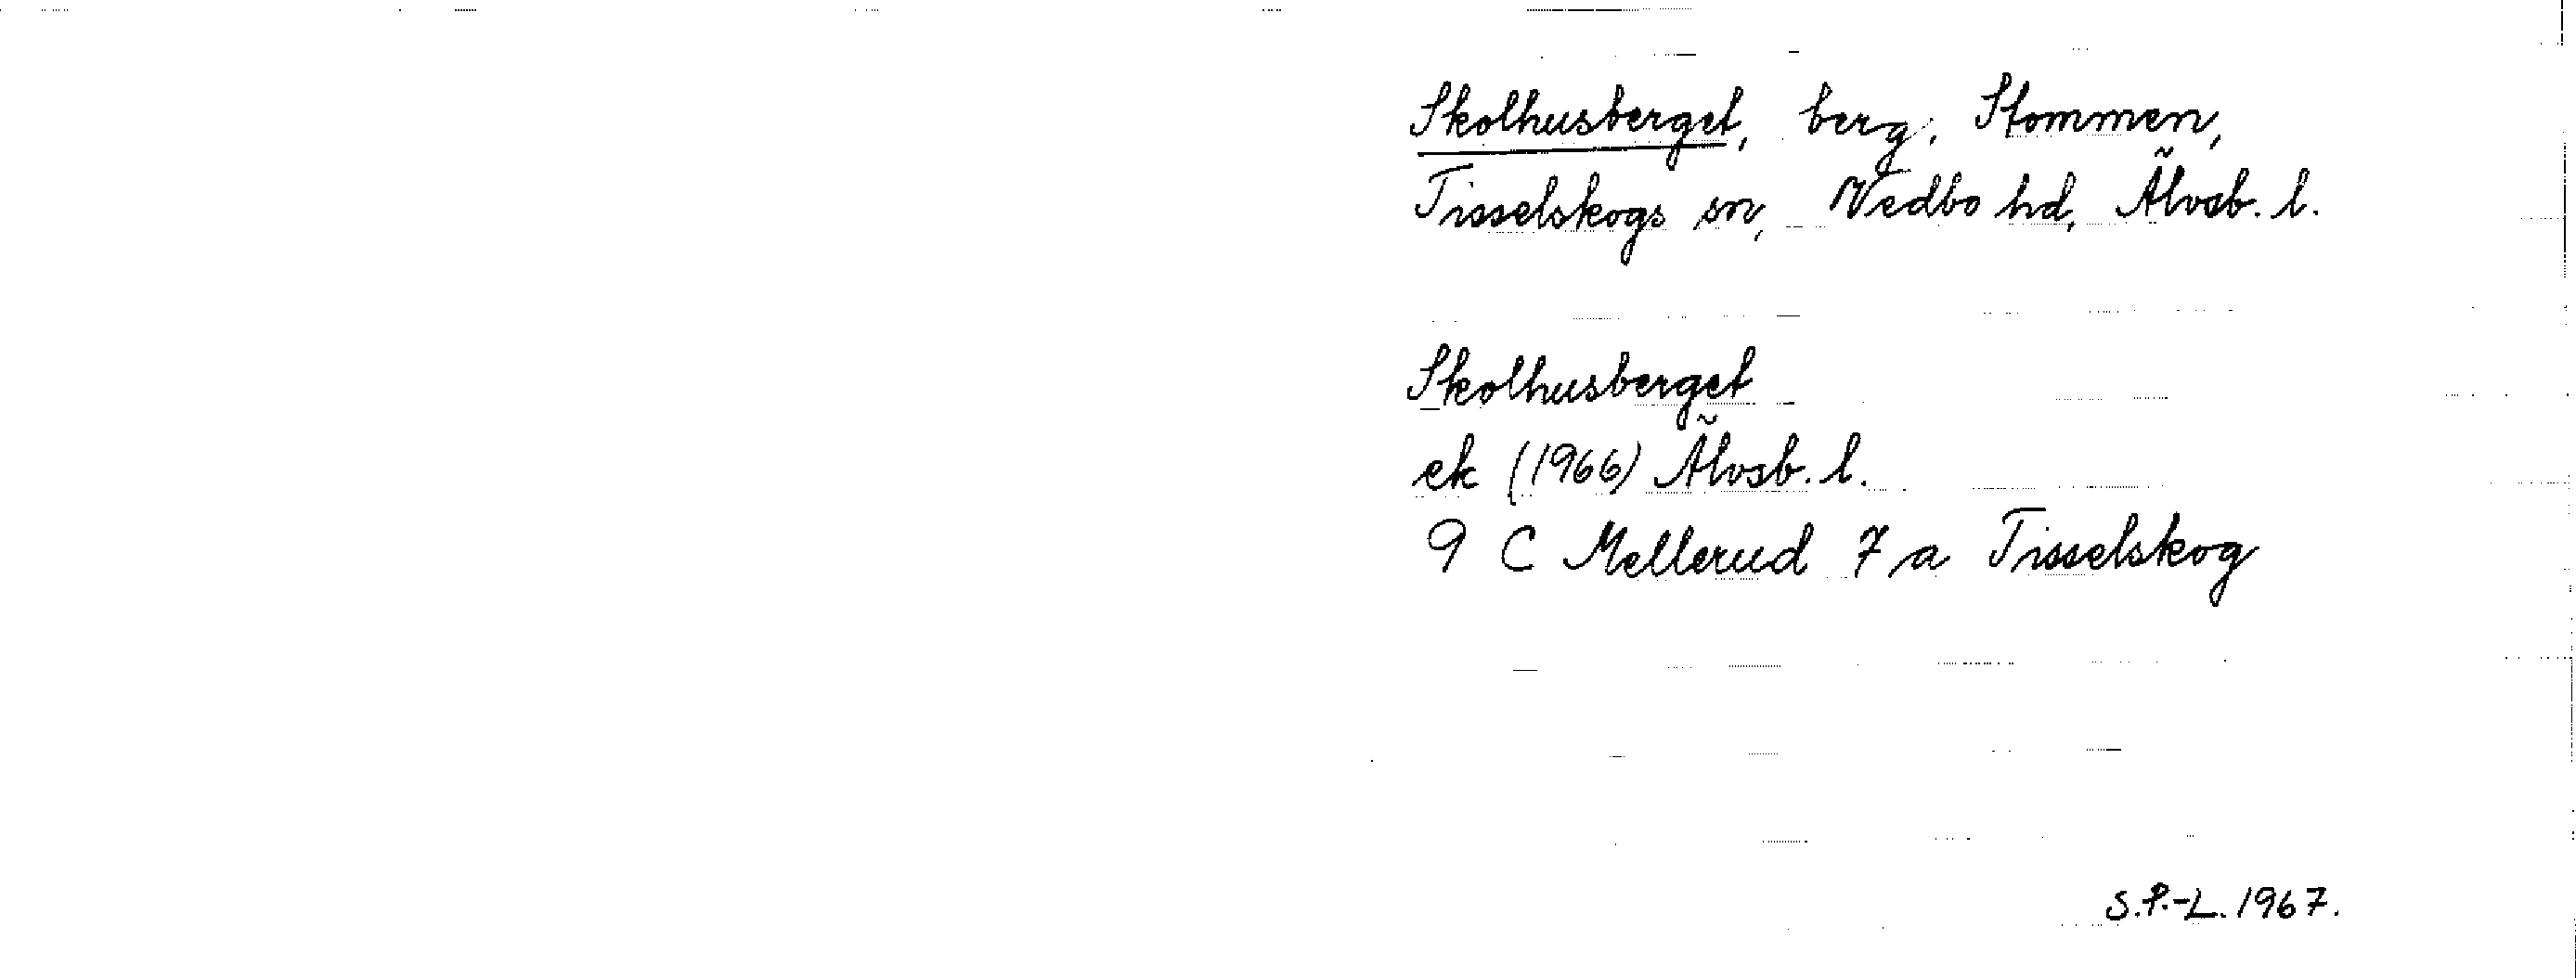 Skolhusberget, berg, Stommen,
Tisselskogs sn, Vedbo hd, Älvsb. l.
Skolhusberget
ek (1966) Älvsb. l.
9 C Mellerud 7 a Tisselskog
S.P.-L. 1967.